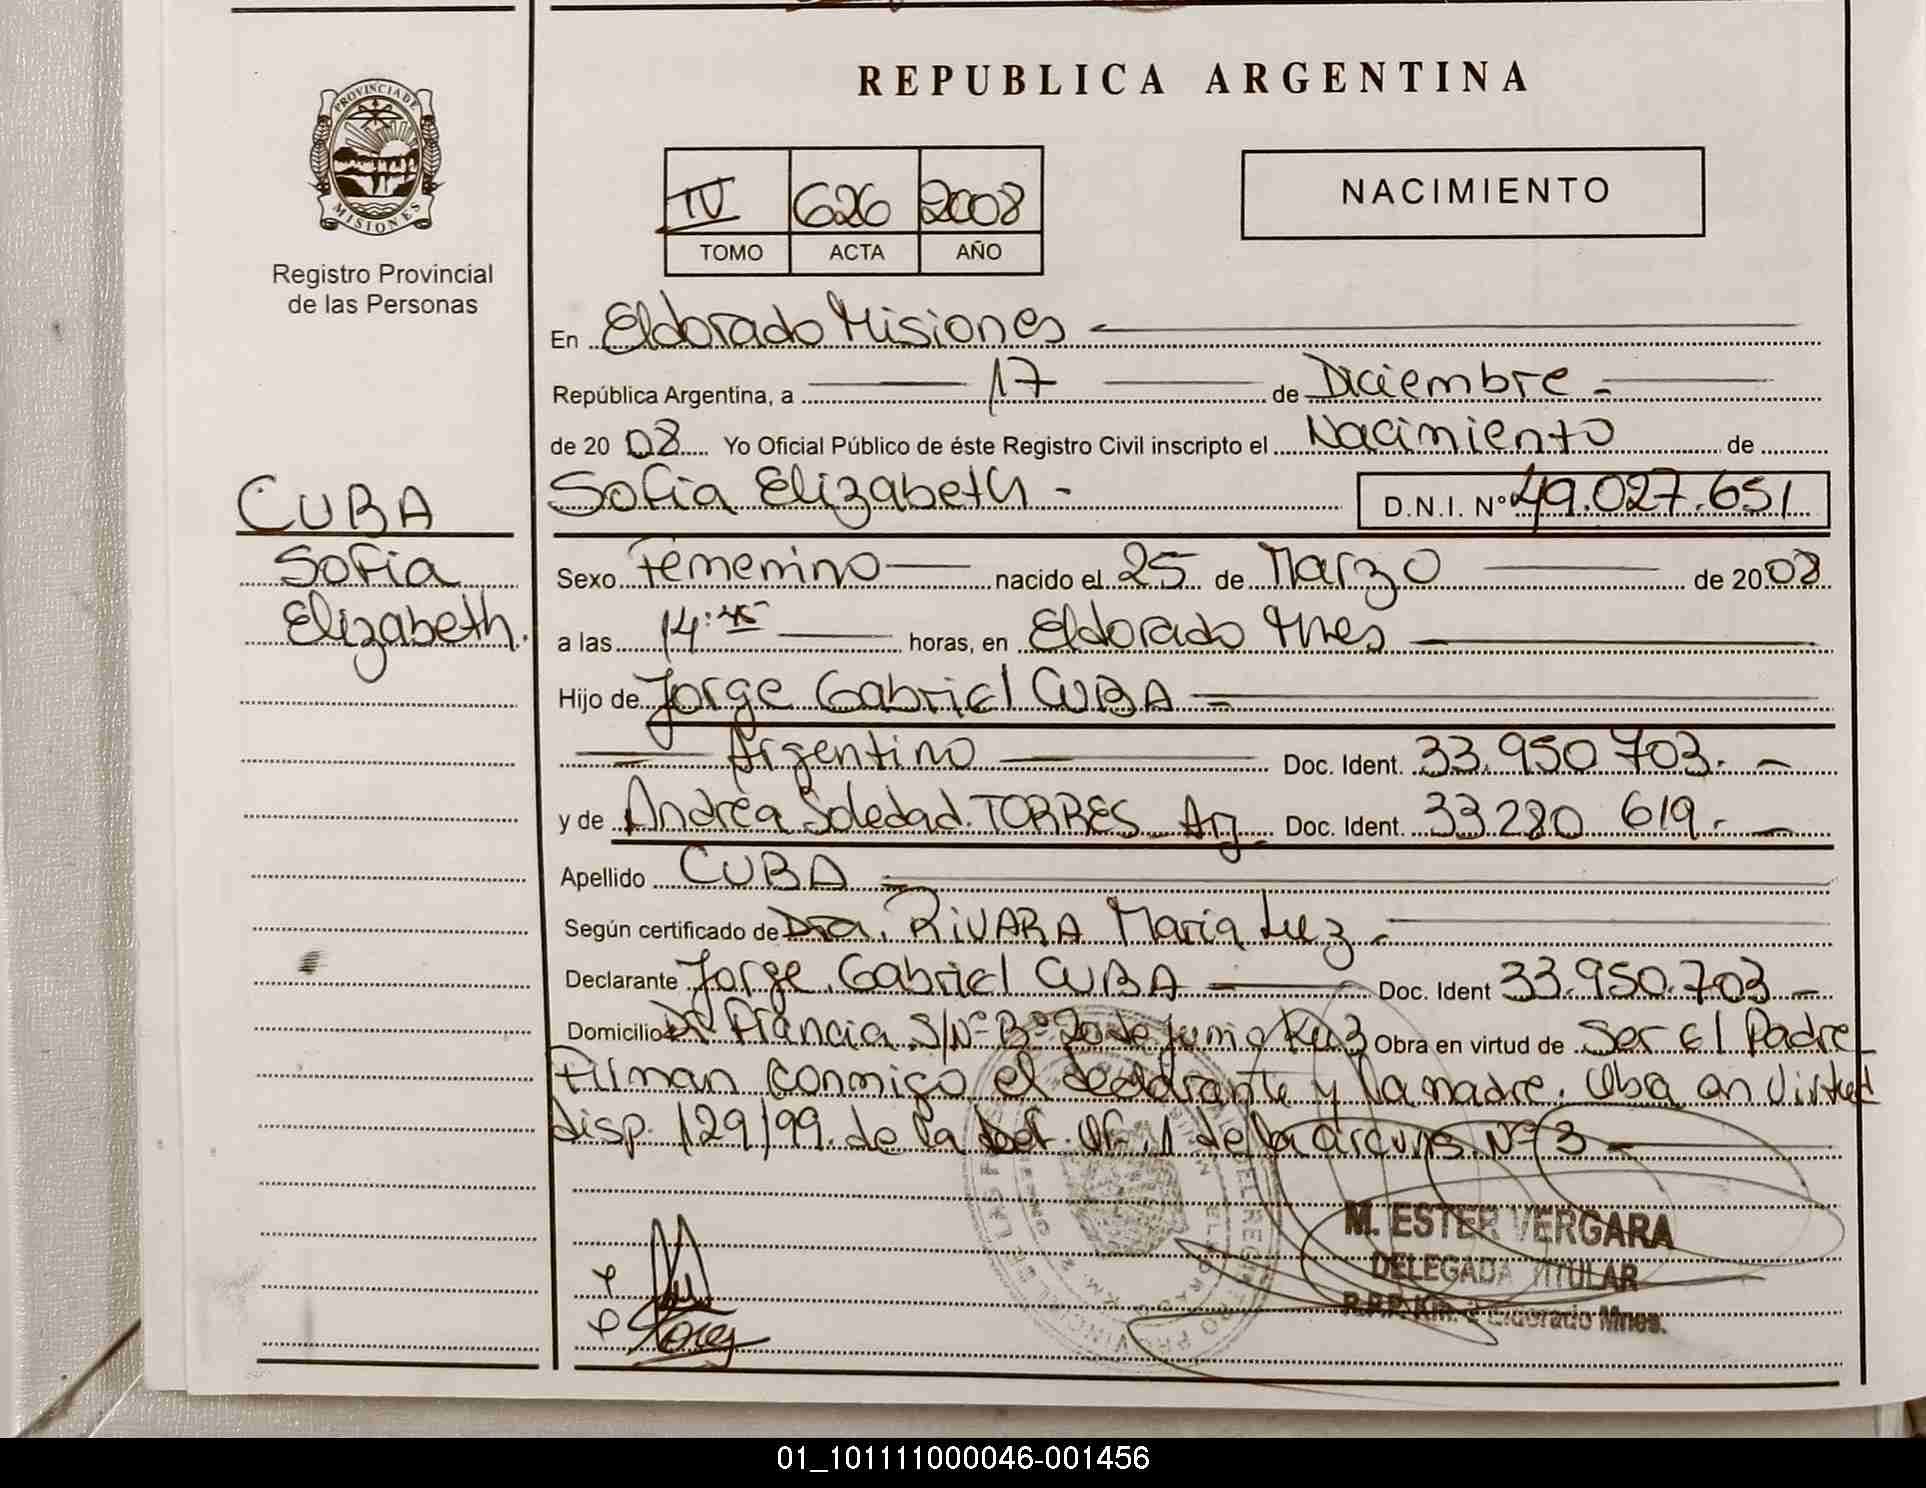 REPUBLICA ARGENTINA
PROVINCIA DE
MISIONES
Registro Provincial
de las Personas
IV 626 2008
TOMO ACTA AÑO
NACIMIENTO
En Eldorado Misiones
República Argentina, a 17 de Diciembre
de 20 08 Yo Oficial Público de éste Registro Civil inscripto el Nacimiento de
Sofia Elizabeth - D.N.I. Nº 49.027.651
CUBA
Sofia
Elizabeth.
Sexo Femenino nacido el 25 de Marzo de 20 08
a las 14:45 horas, en Eldorado Mnes
Hijo de Jorge Gabriel CUBA
Argentino Doc. Ident. 33.950 703.
y de Andrea Soledad TORRES Arg Doc. Ident. 33 280 619.
Apellido CUBA
Según certificado de Dra. RIVARA Maria Luz
Declarante Jorge Gabriel CUBA Doc. Ident 33.950.703
Domicilio Francia S/Nº Bº 20 de Junio Obra en virtud de Ser El Padre
Firman conmigo el declarante y la madre. Oba en Virtud
disp. 129/99 de la 1 de la Nº 3
M. ESTER VERGARA
DELEGADA TITULAR
R.P.P. Km. Eldorado Mnes.
Torres
01_101111000046-001456